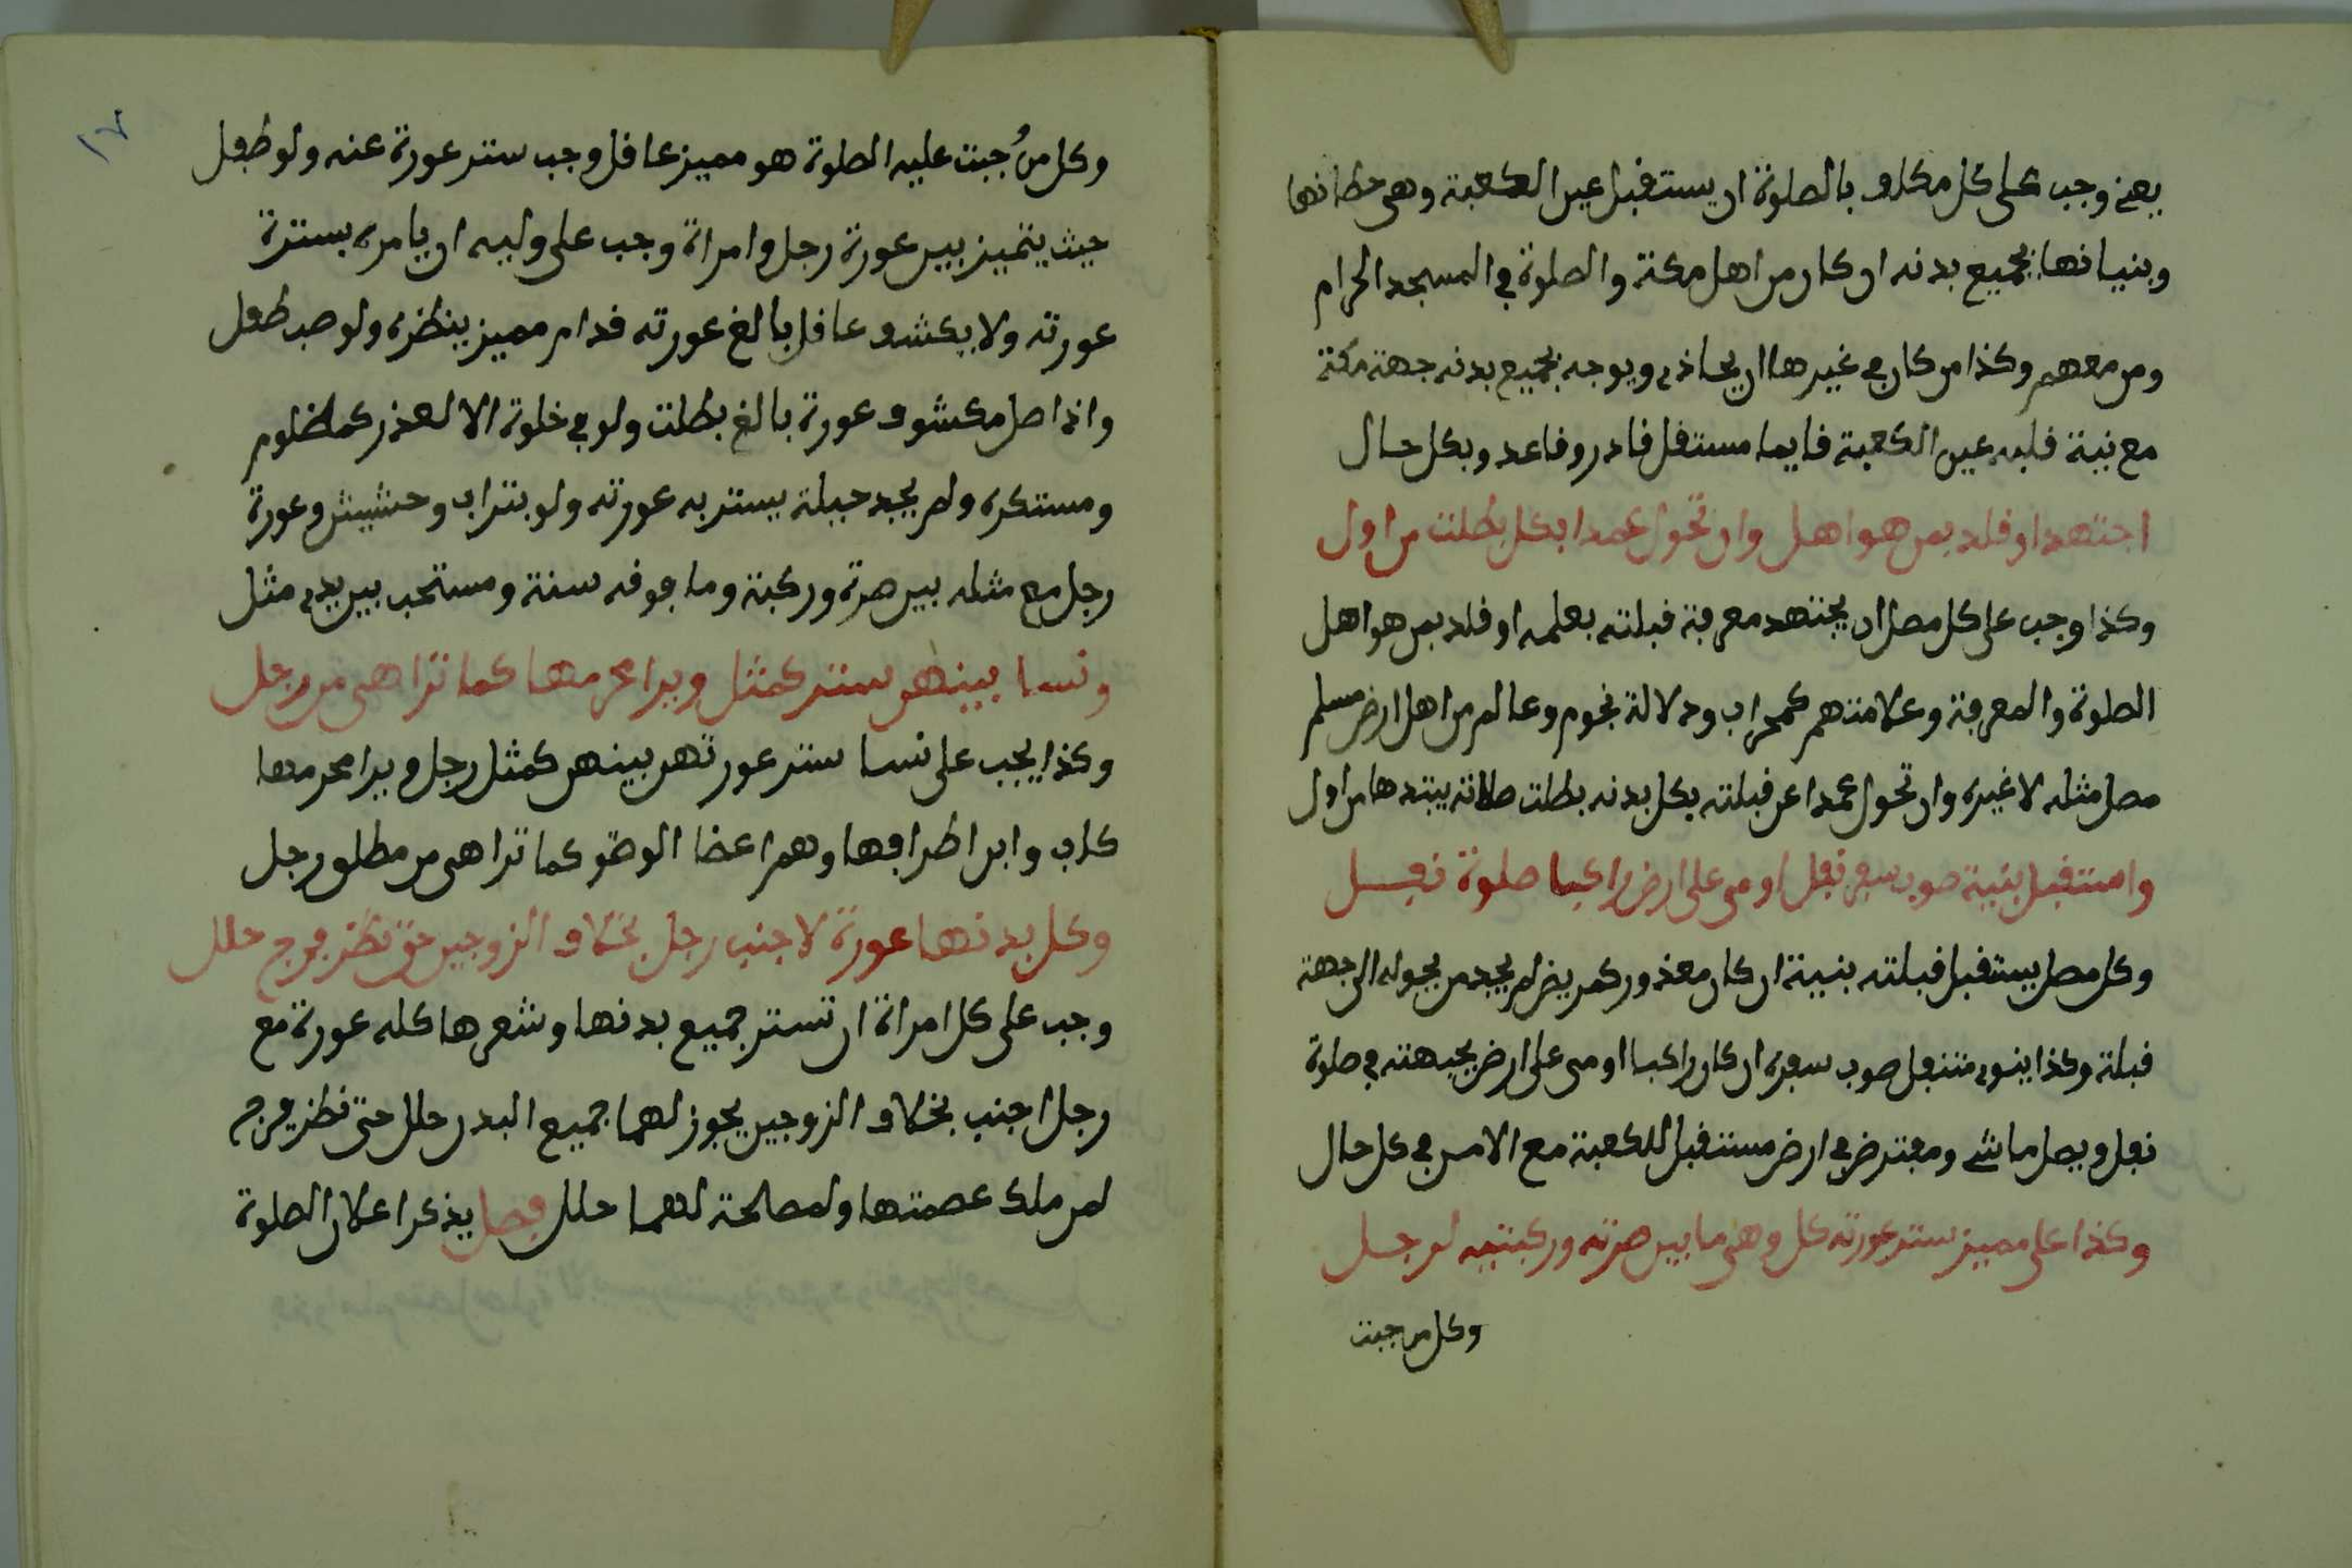 يعني وجب على كل مكلف بالصلوة ان يستقبل عين الكعبة وهي حطانها
وبنيانها بجميع بدنه ان كان من اهل مكة والصلوة في المسجد الحرام
ومن معهم وكذا من كان في غيرها ان يحاذي ويوجه بجميع بدنه جهة مكة
مع نية قلبه عين الكعبة قايما مستقل قادر وقاعد وبكل حال
اجتهد او قلد بمن هو اهل وان تحول عمدا بكل بطلت من اول
وكذا وجب على كل مصل ان يجتهد معرفة قبلته بعلمه او قلد بمن هو اهل
الصلوة والمعرفة وعلامتهم كمحراب ودلالة نجوم وعالم من اهل ارض مسلم
مصل مثله لا غيره وان تحول عمدا عن قبلته بكل بدنه بطلت صلاته يبتدها من اول
واستقبل بنية صوب سفر نفل اومى على ارض راكبا صلوة نفل
وكل مصل يستقبل قبلته بنية ان كان معذور كمريض لم يجد من يحوله الى جهة
قبلته وكذا ينوي متنفل صوب سفره ان كان راكبا اومى على ارض بجبهته في صلوة
نفل ويصل ماشي ومفترض في ارض مستقبل للكعبة مع الامن في كل حال
وكذا على مميز ستر عورته كل وهي ما بين صرته وركبتيه لرجل
وكل من جبت
١٧
وكل من وُجبت عليه الصلوة هو مميز عاقل وجب ستر عورة عنه ولو طفل
حيث يتميز بين عورة رجل وامراة وجب على وليه ان يامره بسترة
عورته ولا يكشف عاقل بالغ عورته قدام مميز ينظره ولو صب طفل
واذا صل مكشوف عورة بالغ بطلت ولو في خلوة الا لعذر كمظلوم
ومستكره ولم يجد حيلة يستر به عورته ولو بتراب وحشيش وعورة
رجل مع مثله بين صرة وركبة وما فوقه سنة ومستحب بين يدي مثل
ونسا بينهن ستر كمثل ويرا محرمها كما ترا هي من رجل
وكذا يجب على نسا ستر عورتهن بينهن كمثل رجل ويرا محرمها
كاب وابن اطرافها وهم اعضا الوضو كما ترا هي من مطلق رجل
وكل بدنها عورة لاجنب رجل بخلاف الزوجين حتى نظر فرج حلل
وجب على كل امراة ان تستر جميع بدنها وشعرها كله عورة مع
رجل اجنب بخلاف الزوجين يجوز لهما جميع البدن حلل حتى نظر فرج
لمن ملك عصمتها ولمصالحة لهما حلل فصل يذكر اعلان الصلوة